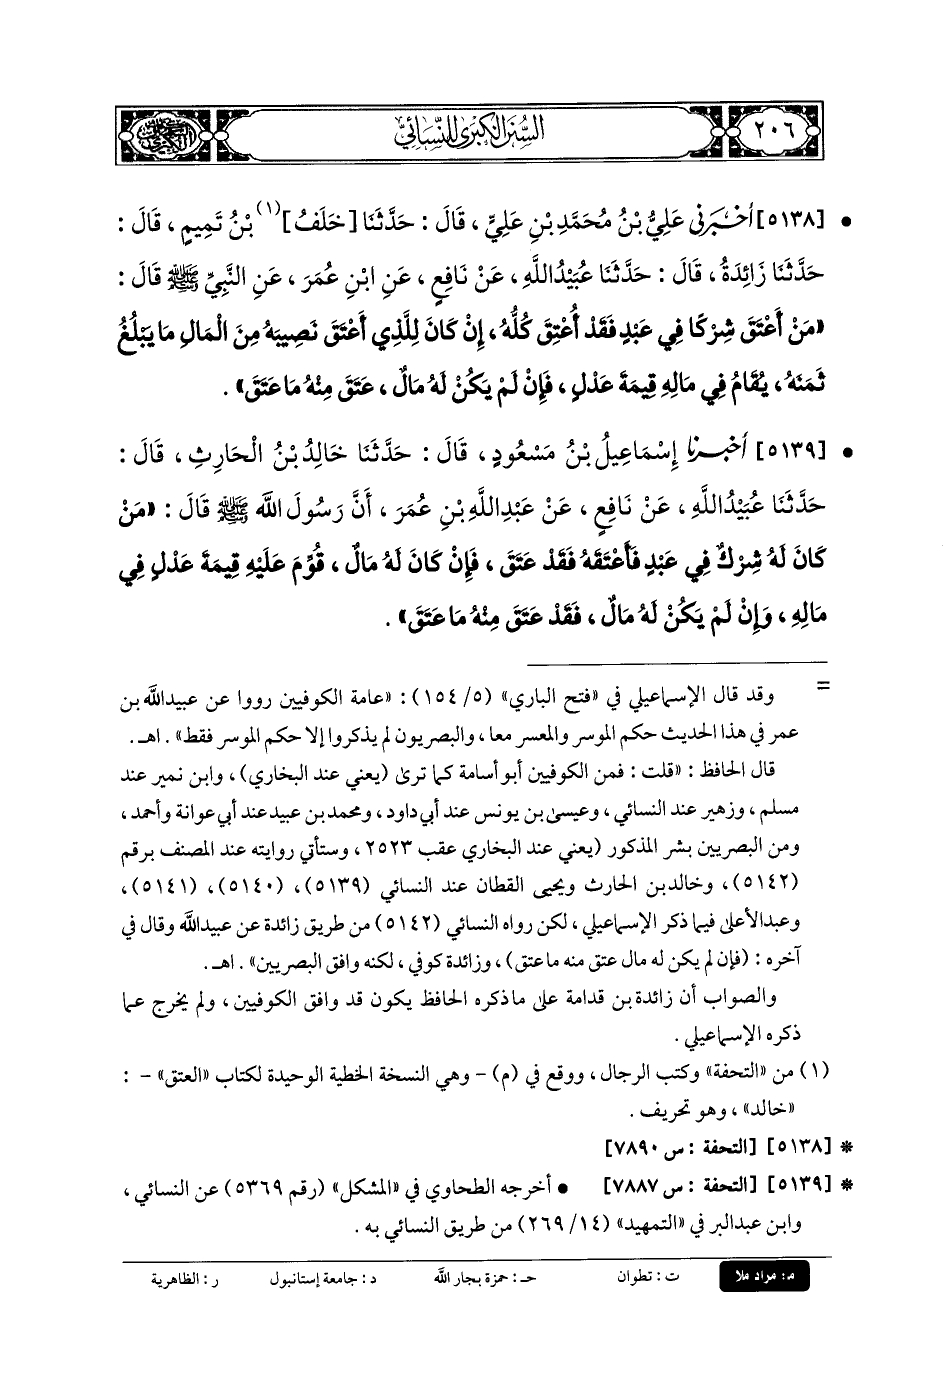 ٢٠٦
السُّنَنُ الكِبْرَى لِلنَّسَائِيِّ
• [٥١٣٨] أَخْبَرَنِي عَلِيُّ بْنُ مُحَمَّدِ بْنِ عَلِيٍّ ، قَالَ : حَدَّثَنَا [خَلَفُ] (١) بْنُ تَمِيمٍ ، قَالَ :
حَدَّثَنَا زَائِدَةُ ، قَالَ : حَدَّثَنَا عُبَيْدُاللَّهِ ، عَنْ نَافِعٍ ، عَنِ ابْنِ عُمَرَ ، عَنِ النَّبِيِّ ﷺ قَالَ :
«مَنْ أَعْتَقَ شِرْكًا فِي عَبْدٍ فَقَدْ أُعْتِقَ كُلُّهُ ، إِنْ كَانَ لِلَّذِي أَعْتَقَ نَصِيبَهُ مِنَ الْمَالِ مَا يَبْلُغُ
ثَمَنَهُ ، يُقَامُ فِي مَالِهِ قِيمَةَ عَدْلٍ ، فَإِنْ لَمْ يَكُنْ لَهُ مَالٌ ، عَتَقَ مِنْهُ مَا عَتَقَ» .
• [٥١٣٩] أَخْبَرَنَا إِسْمَاعِيلُ بْنُ مَسْعُودٍ ، قَالَ : حَدَّثَنَا خَالِدُ بْنُ الْحَارِثِ ، قَالَ :
حَدَّثَنَا عُبَيْدُاللَّهِ ، عَنْ نَافِعٍ ، عَنْ عَبْدِاللَّهِ بْنِ عُمَرَ ، أَنَّ رَسُولَ اللَّه ﷺ قَالَ : «مَنْ
كَانَ لَهُ شِرْكٌ فِي عَبْدٍ فَأَعْتَقَهُ فَقَدْ عَتَقَ ، فَإِنْ كَانَ لَهُ مَالٌ ، قُوِّمَ عَلَيْهِ قِيمَةَ عَدْلٍ فِي
مَالِهِ ، وَإِنْ لَمْ يَكُنْ لَهُ مَالٌ ، فَقَدْ عَتَقَ مِنْهُ مَا عَتَقَ» .
= وقد قال الإسماعيلي في «فتح الباري» (٥/ ١٥٤) : «عامة الكوفيين رووا عن عبيدالله بن
عمر في هذا الحديث حكم الموسر والمعسر معا ، والبصريون لم يذكروا إلا حكم الموسر فقط» . اهـ .
قال الحافظ : «قلت : فمن الكوفيين أبو أسامة كما ترى (يعني عند البخاري) ، وابن نمير عند
مسلم ، وزهير عند النسائي ، وعيسى بن يونس عند أبي داود ، ومحمد بن عبيد عند أبي عوانة وأحمد ،
ومن البصريين بشر المذكور (يعني عند البخاري عقب ٢٥٢٣ ، وستأتي روايته عند المصنف برقم
(٥١٤٢) ، وخالد بن الحارث ويحيى القطان عند النسائي (٥١٣٩) ، (٥١٤٠) ، (٥١٤١) ،
وعبدالأعلى فيما ذكر الإسماعيلي ، لكن رواه النسائي (٥١٤٢) من طريق زائدة عن عبيدالله وقال في
آخره : (فإن لم يكن له مال عتق منه ما عتق) ، وزائدة كوفي ، لكنه وافق البصريين» . اهـ .
والصواب أن زائدة بن قدامة على ما ذكره الحافظ يكون قد وافق الكوفيين ، ولم يخرج عما
ذكره الإسماعيلي .
(١) من «التحفة» وكتب الرجال ، ووقع في (م) - وهي النسخة الخطية الوحيدة لكتاب «العتق» - :
«خالد» ، وهو تحريف .
* [٥١٣٨] [التحفة : س ٧٨٩٠]
* [٥١٣٩] [التحفة : س ٧٨٨٧] • أخرجه الطحاوي في «المشكل» (رقم ٥٣٦٩) عن النسائي ،
وابن عبدالبر في «التمهيد» (١٤/ ٢٦٩) من طريق النسائي به .
م: مراد ملا ت : تطوان حـ : حمزة بجار الله د : جامعة إستانبول ر : الظاهرية